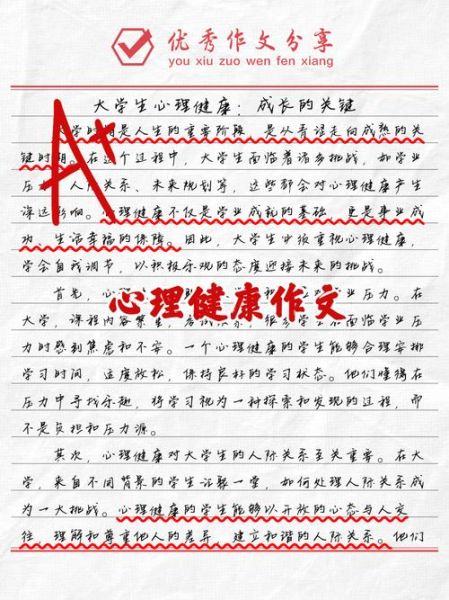 优秀作文分享
you xiu zuo wen fen xiang
大学生心理健康：成长的关键
A+
大学时期是人生的重要阶段，是从青涩走向成熟的关
键时期。在这个过程中，大学生面临着诸多挑战，如学业
压力、人际关系、未来规划等，这些都会对心理健康产生
深远影响。心理健康不仅是学业成就的基础，更是事业成
功、生活幸福的保障。因此，大学生必须重视心理健康，
学会自我调节，以积极乐观的态度迎接未来的挑战。
首先，心理
学业压力。在
心理健康作文
大学，课程内容繁重，
很多学生在面临学业压
力时感到焦虑和不安。一个心理健康的学生能够合理安排
学习时间，适度放松，保持良好的学习状态。他们懂得在
压力中寻找乐趣，将学习视为一种探索和发现的过程，而
不是负担和压力源。
其次，心理健康对大学生的人际关系至关重要。在大
学，来自不同背景的学生汇聚一堂，如何处理人际关系成
为一大挑战。心理健康的学生能够以开放的心态与人交
往，理解和尊重他人的差异，建立和谐的人际关系。他们